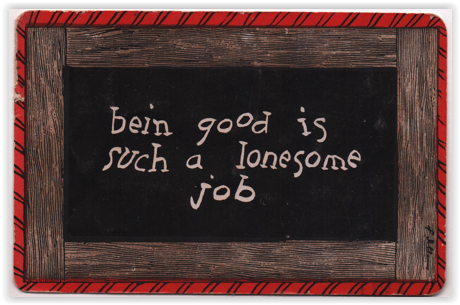 bein good is
such a lonesome
job